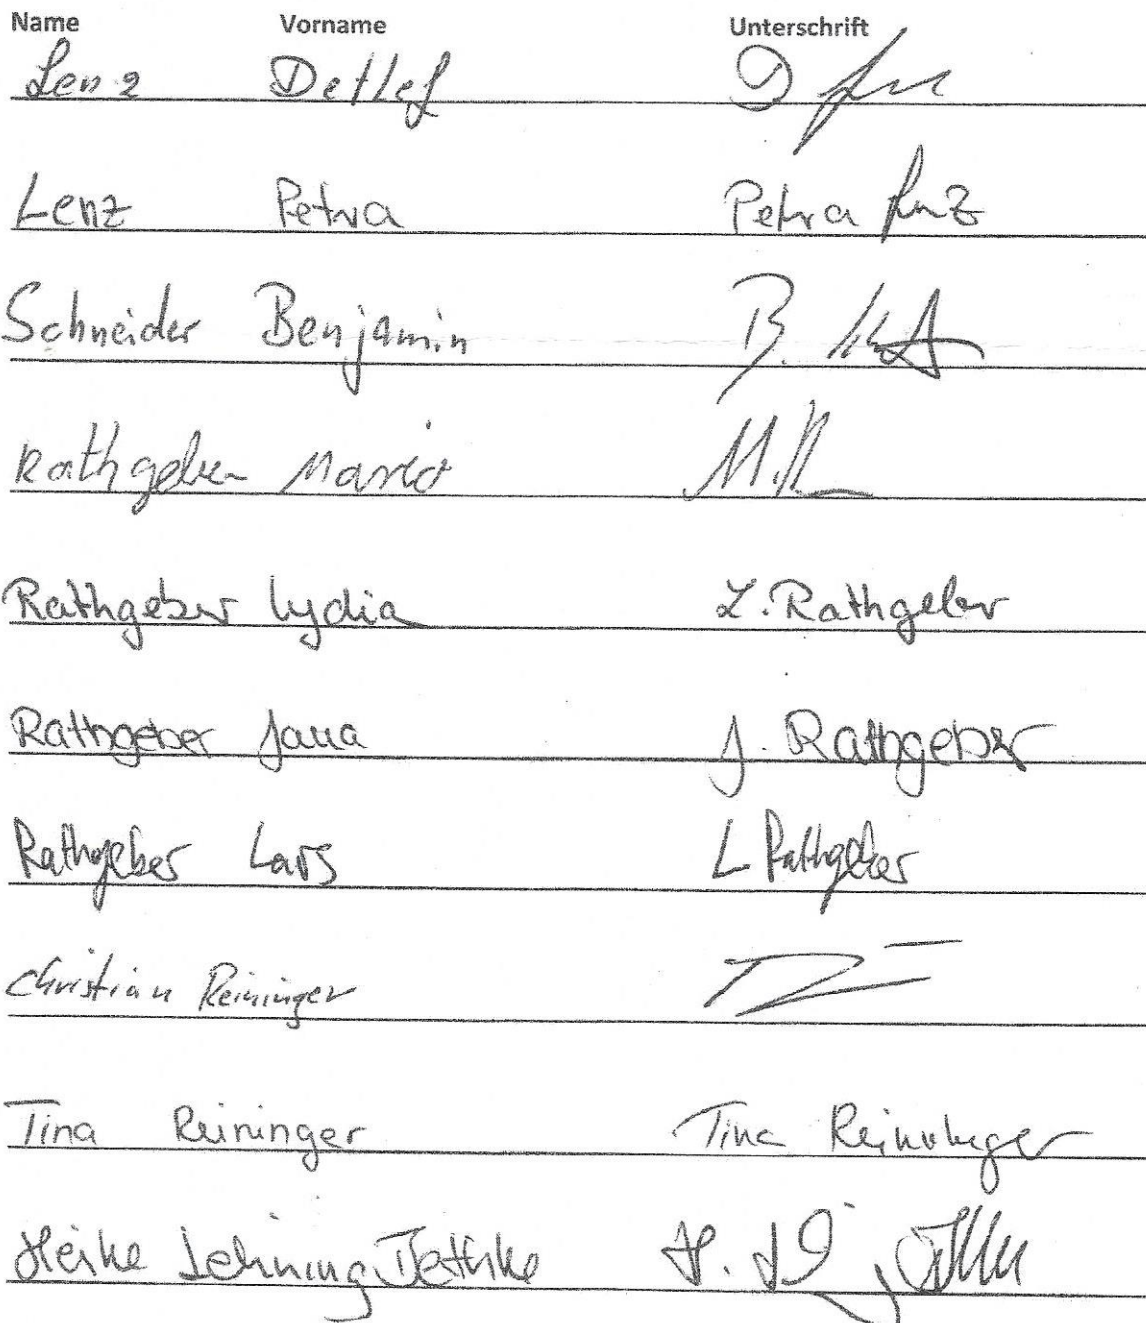 Name Vorname Unterschrift
Lenz Detlef D
Lenz Petra Petra Lenz
Schneider Benjamin B.
Rathgeber Mario M.R
Rathgeber Lydia L. Rathgeber
Rathgeber Jana J. Rathgeber
Rathgeber Lars L Rathgeber
Christian Reininger
Tina Reininger Tina Reininger
Heike Jethke H.